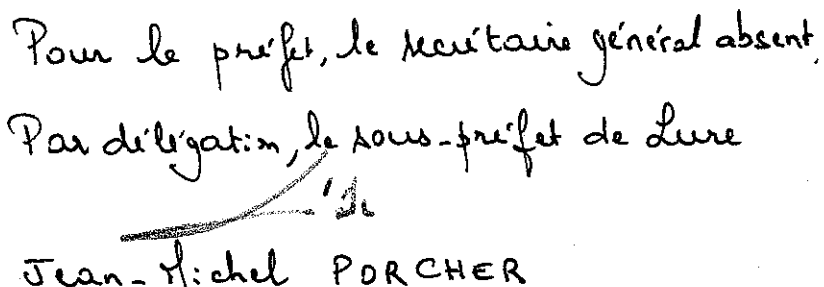 Pour le préfet, le secrétaire général absent,
Par délégation, le sous-préfet de Lure
Jean-Michel PORCHER